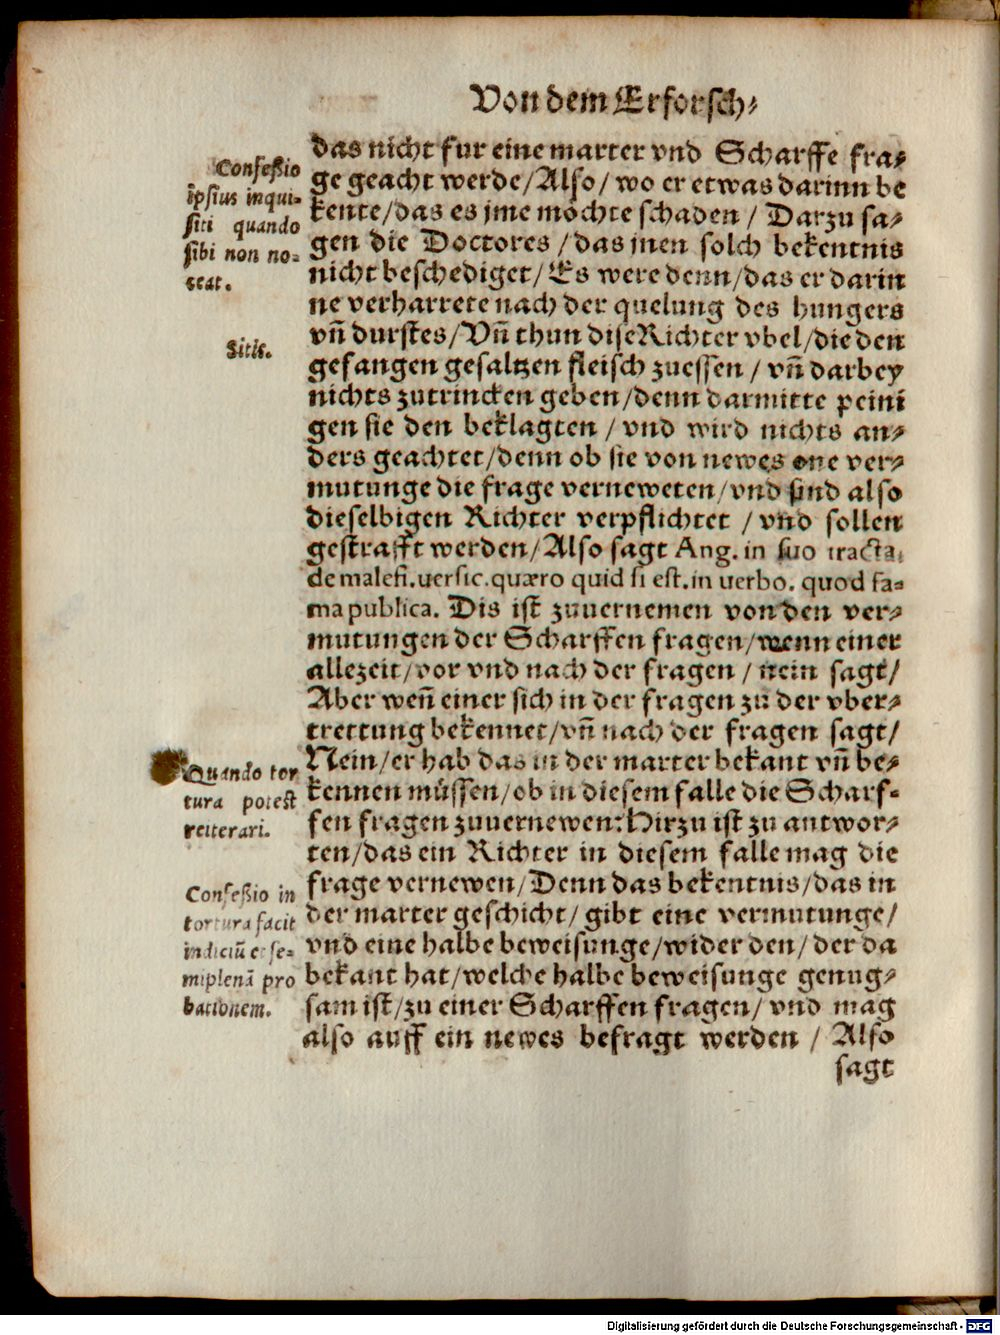 Von dem Erforsch⸗
das nicht fur eine marter vnd Scharffe fra⸗
ge geacht werde/Also/wo er etwas darinn be
kente/das es jme möchte schaden / Darzu sa⸗
gen die Doctores /das jnen solch bekentnis
nicht beschediget/Es were denn/das er darin
ne verharrete nach der quelung des hungers
vñ durstes/Vñ thun dise Richter vbel/die den
gefangen gesaltzen fleisch zuessen / vñ darbey
nichts zutrincken geben/denn darmitte peini
gen sie den beklagten / vnd wird nichts an⸗
ders geachtet/denn ob sie von newes one ver⸗
mutunge die frage verneweten/vnd sind also
dieselbigen Richter verpflichtet / vnd sollen
gestrafft werden/Also sagt Ang. in suo tracta.
de malefi. uersic. quæro quid si est. in uerbo. quod fa⸗
ma publica. Dis ist zuuernemen von den ver⸗
mutungen der Scharffen fragen/wenn einer
allezeit/vor vnd nach der fragen / nein sagt/
Aber weñ einer sich in der fragen zu der vber⸗
trettung bekennet/vñ nach der fragen sagt/
Nein/er hab das in der marter bekant vñ be⸗
kennen müssen/ob in diesem falle die Scharf⸗
fen fragen zuuernewen: Hirzu ist zu antwor⸗
ten/das ein Richter in diesem falle mag die
frage vernewen/Denn das bekentnis/das in
der marter geschicht/ gibt eine vermutunge/
vnd eine halbe beweisunge/wider den/der da
bekant hat/welche halbe beweisunge genug⸗
sam ist/zu einer Scharffen fragen/ vnd mag
also auff ein newes befragt werden / Also
sagt
Confeßio
ipsius inqui⸗
siti quando
sibi non no⸗
ceat.
Sitis.
Quando tor
tura potest
reiterari.
Confeßio in
tortura facit
indiciũ et se⸗
miplenã pro
bationem.
Digitalisierung gefördert durch die Deutsche Forschungsgemeinschaft - DFG